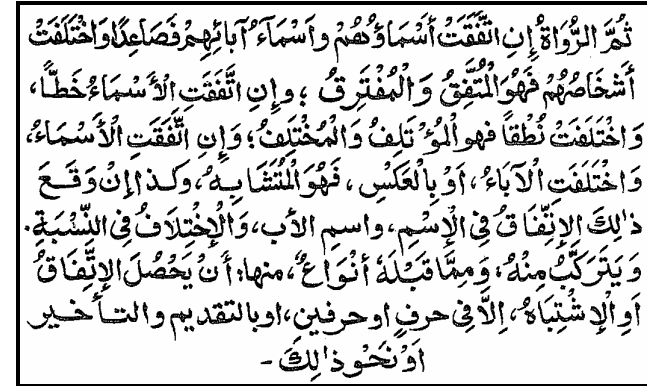 ثُمَّ الرُّوَاةُ إِنِ اتَّفَقَتْ أَسْمَاؤُهُمْ وَأَسْمَآءُ آبَائِهِمْ فَصَاعِدًا وَاخْتَلَفَتْ
أَشْخَاصُهُمْ فَهُوَ الْمُتَّفِقُ وَالْمُفْتَرِقُ ؛ وَإِنِ اتَّفَقَتِ الْأَسْمَاءُ خَطًّا،
وَاخْتَلَفَتْ نُطْقًا فهو الْمُؤْتَلِفُ وَالْمُخْتَلِفُ؛ وَإِنِ اتَّفَقَتِ الْأَسْمَاءُ،
وَاخْتَلَفَتِ الْآبَاءُ، اَوْ بِالْعَكْسِ ، فَهُوَ الْمُتَشَابِهُ، وَكَذا إِنْ وَقَعَ
ذٰلِكَ الْاِتِّفَاقُ فِي الْاِسْمِ، واسمِ الأبِ، وَالْاِخْتِلَافُ فِي النِّسْبَةِ.
وَيَتَرَكَّبُ مِنْهُ، وَمِمَّا قَبْلَهُ أَنْوَاعٌ، منها: أَنْ يَحْصُلَ الْاِتِّفَاقُ
اَوِ الْاِشْتِبَاهُ، اِلَّا فِي حرفٍ او حرفينِ، او بالتقديم والتـأخيرِ
اَوْ نَحْوِ ذٰلِكَ -